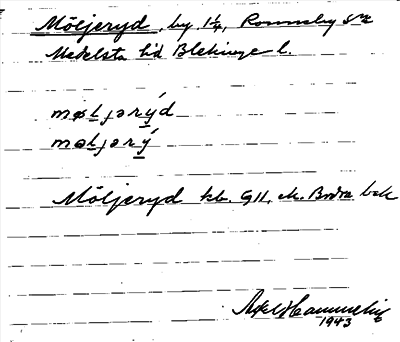 Möljeryd, by, 1¼, Ronneby sn
Medelsta hd Blekinge l.
møljərýd
møljərý
Möljeryd kb. GII, ek. Bodra bok
Axel Hammelin
1943